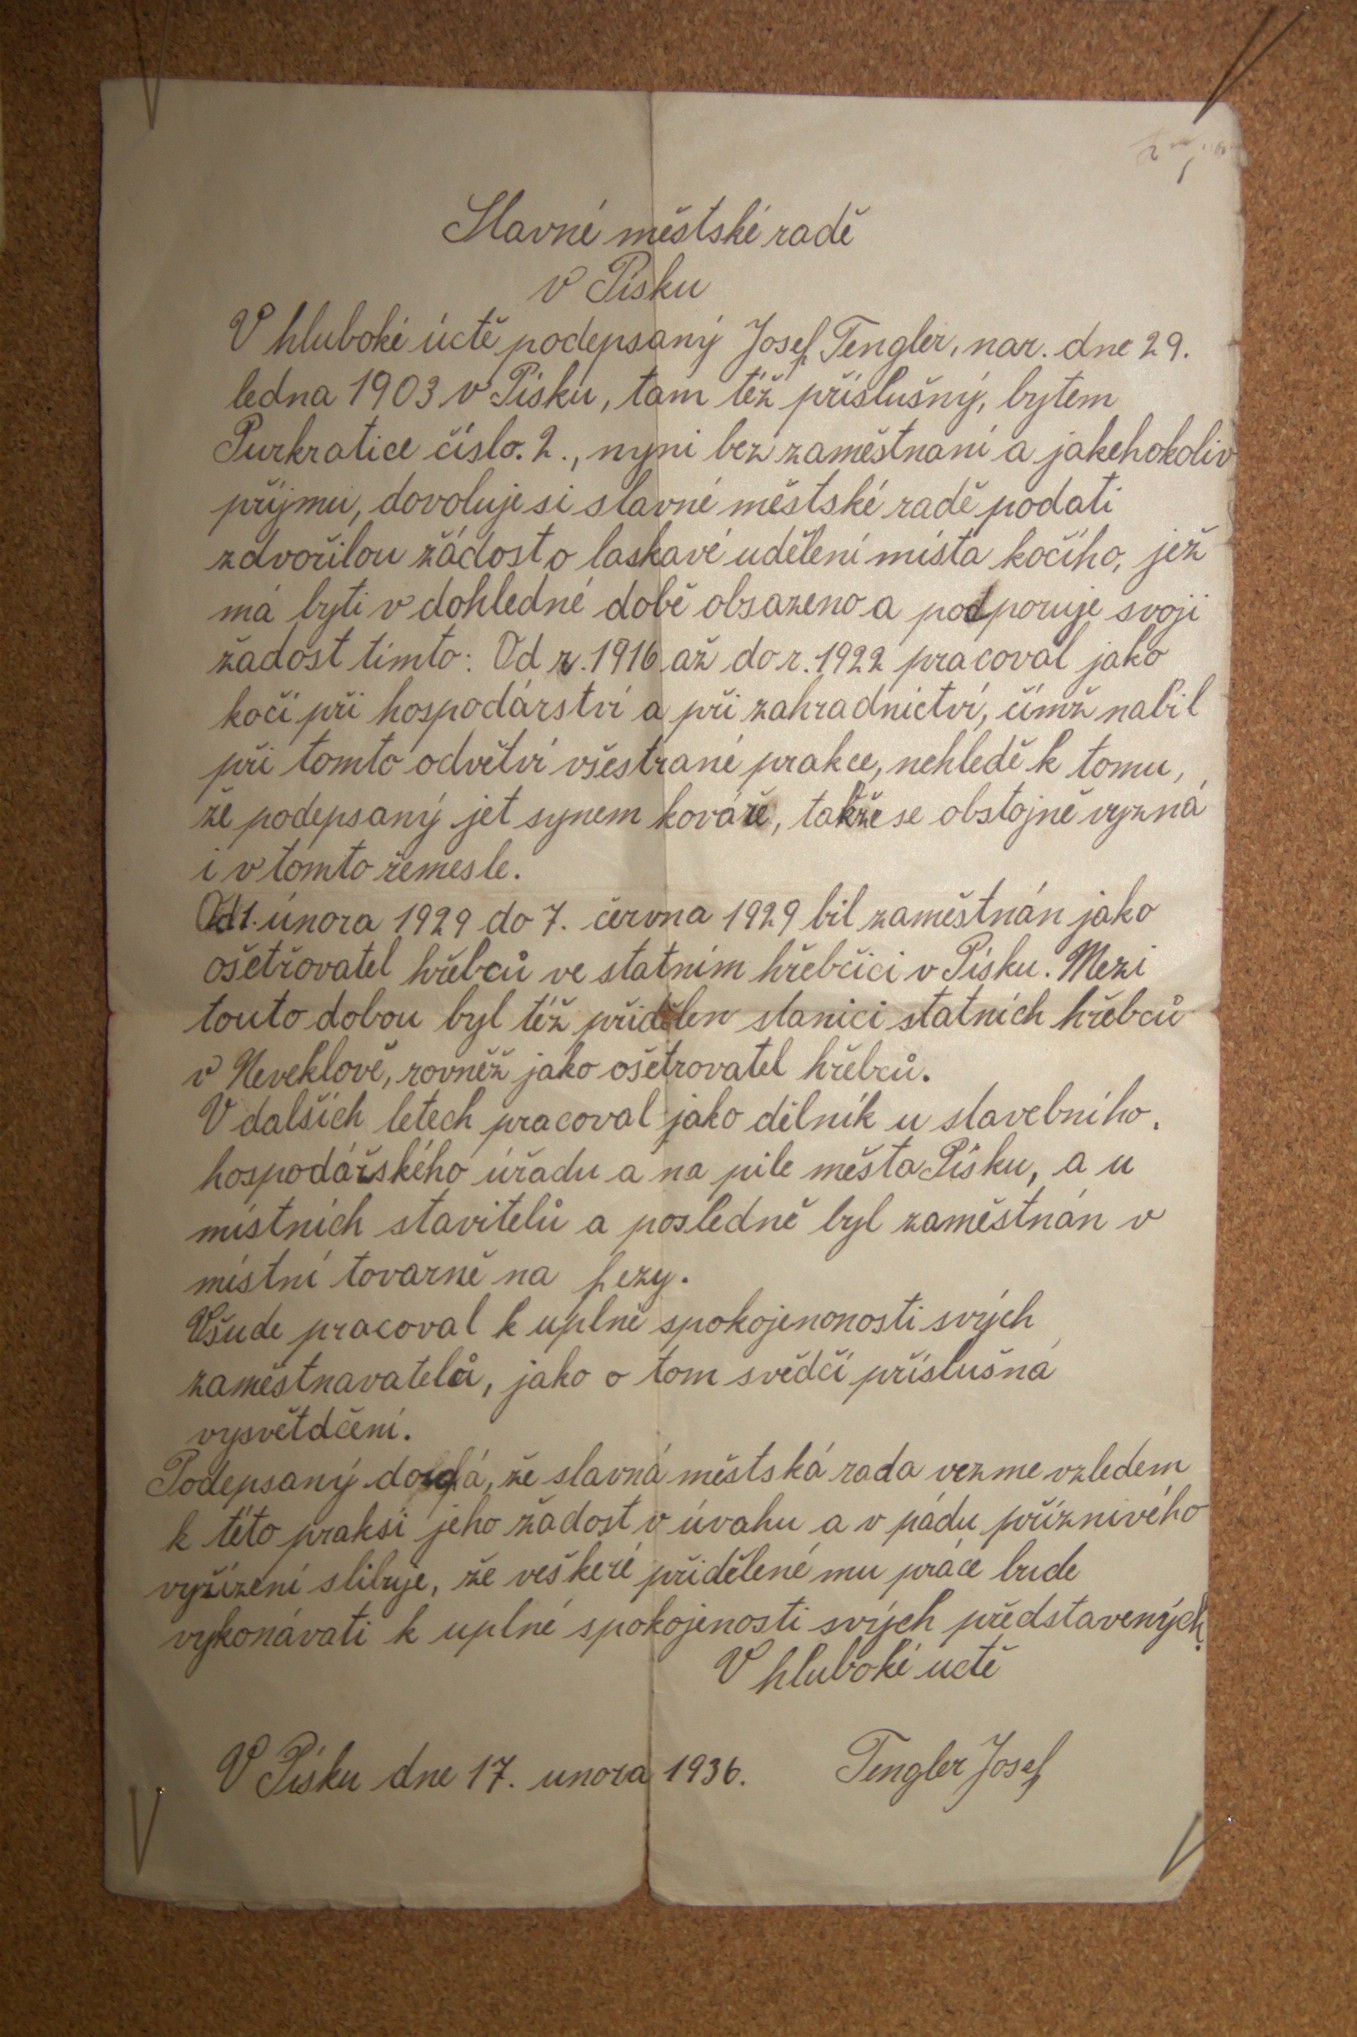 Slavné městské radě
v Písku
V hluboké úctě podepsaný Josef Tengler, nar. dne 29.
ledna 1903 v Písku, tam též příslušný, bytem
Purkratice číslo. 2., nyní bez zaměstnaní a jakehokoliv
příjmu, dovoluje si slavné městské radě podati
zdvořilou žádost o laskavé udělení místa kočího, jež
má byti v dohledné době obsazeno a podporuje svoji
žadost tímto: Od r. 1916 až do r. 1922 pracoval jako
kočí při hospodárství a při zahradnictví, čímž nabil
při tomto odvětví všestrané prakce, nehledě k tomu,
že podepsaný jet synem kováře, takže se obstojně vyzná
i v tomto řemesle.
Od 1. února 1929 do 7. června 1929 bil zaměstnán jako
ošetřovatel hřebců ve statním hřebčíci v Písku. Mezi
touto dobou byl též přidělen stanici statních hřebců
v Neveklově, rovněž jako ošetrovatel hřebců.
V dalších letech pracoval jako dělník u stavebního,
hospodářského úřadu a na pile města Písku, a u
místních stavitelů a posledně byl zaměstnán v
místní tovarně na fezy.
Všude pracoval k uplné spokojenonosti svých
zaměstnavatelů, jako o tom svědčí příslušná
vysvětdčení.
Podepsaný doufá, že slavná městská rada vezme vzledem
k této praksi jeho žadost v úvahu a v pádu příznivého
vyřízení slibuje, že veškeré přidělené mu práce bude
vykonávati k uplné spokojenosti svých představených.
V hluboké uctě
V Písku dne 17. unora 1936.
Tengler Josef